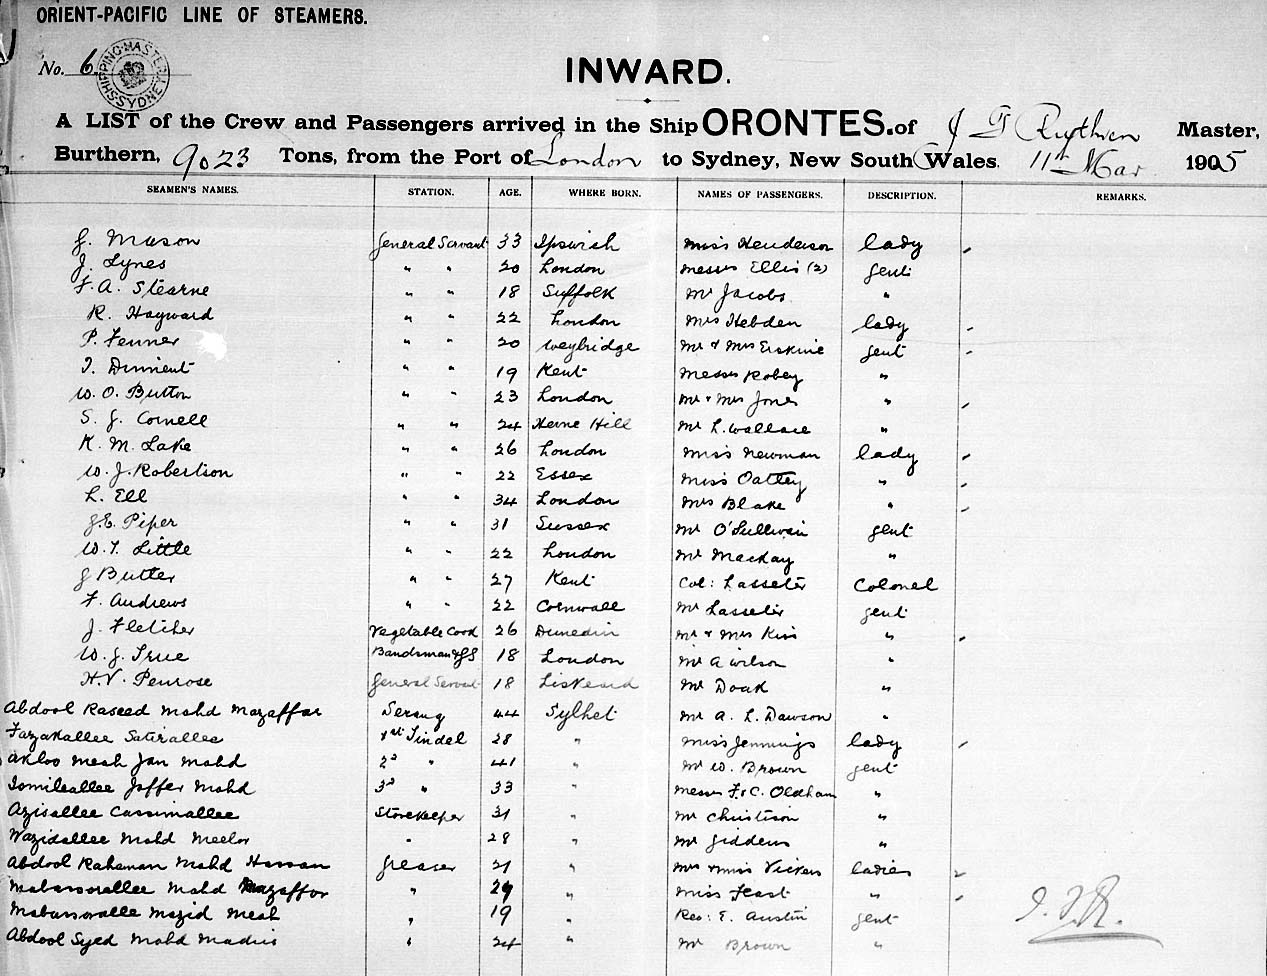 ORIENT-PACIFIC LINE OF STEAMERS.
No. 6
SHIPPING MASTER SYDNEY
INWARD.
A LIST of the Crew and Passengers arrived in the Ship ORONTES. of J G Ruthven Master,
Burthern, 9023 Tons, from the Port of London to Sydney, New South Wales. 11th Mar 1905
SEAMEN'S NAMES. STATION. AGE. WHERE BORN. NAMES OF PASSENGERS. DESCRIPTION. REMARKS.
J. Mason General Servant 33 Ipswich Miss Henderson lady
J. Lynes " " 20 London Messrs Ellis (2) gent
F. A. Stearne " " 18 Suffolk Mr Jacobs "
R. Hayward " " 22 London Mrs Hebden lady
P. Fenner " " 20 Weybridge Mr & Mrs Erskine gent
" " 19 Kent Messrs Robey "
W. O. Button " " 23 London Mr & Mrs Jones "
S. J. Cornell " " 24 Herne Hill Mr L. Wallace "
K. M. Lake " " 26 London Miss Newman lady
W. J. Robertson " " 22 Essex Miss Oatley "
L. Ell " " 34 London Mrs Blake "
J. E. Piper " " 31 Sussex Mr O'Sullivan gent
W. T. Little " " 22 London Mr Mackay "
J Butler " " 27 Kent Col: Lasseter Colonel
F. Andrews " " 22 Cornwall Mr Lasseter gent
J. Fletcher Vegetable Cook 26 Dunedin Mr & Mrs Kiss "
W. J. True Bandsman & GS 18 London Mr A Wilson "
H. V. Penrose General Servant 18 Liskeard Mr Doak "
Abdool Raseed Mohd Mozaffar Serang 44 Sylhet Mr A. L. Dawson "
Fazakallee 1st Tindel 28 " Miss Jennings lady
Akloo Meah Jan Mohd 2d " 41 " Mr W. Brown gent
Ismileallee Joffer Mohd 3d " 33 " Messrs F & C. Oldham "
Azisallee Cassimallee Storekeeper 31 " Mr Christison "
Wazidallee Mohd " 28 " Mr Giddens "
Abdool Rahaman Mohd Hassan Greaser 21 " Mrs & Miss Vickers ladies
Mohd Mozaffor " 29 " Miss Feast "
Mozid Meah " 19 " Rev: E. Austin gent
Abdool Syed Mohd " 24 " Mr Brown "